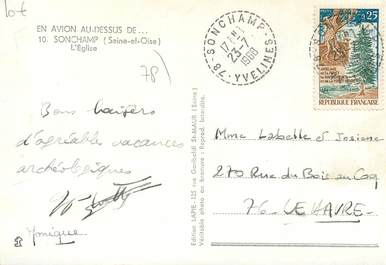 lot
EN AVION AU-DESSUS DE...
10. SONCHAMP (Seine-et-Oise)
L'Église
78)
Bons baisers
d'agréables vacances
archéologiques
Monique
Edition LAPIE, 125 rue Garibaldi St-MAUR (Seine)
Véritable photo au bromure - Reprod. Interdite.
SONCHAMP
17 H
23-7
1968
78-YVELINES
0,25
POSTES
REPUBLIQUE FRANÇAISE
Mme Labelle et Josiane
270 Rue du Bois au Coq
76. LE HAVRE